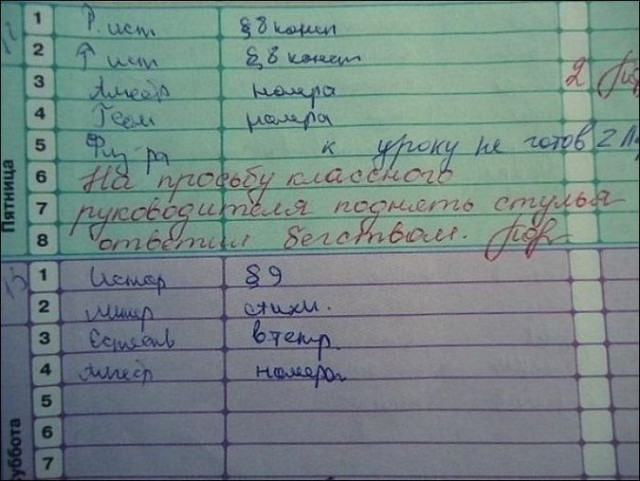 1 Р. ист § 8 консп
2 Р ист § 8 консп
3 Алгебр номера 2
4 Геом номера
5 Физ-ра к уроку не готов 2
6 На просьбу классного
7 руководителя поднять стулья
8 ответил бегством.
Пятница
1 Истор § 9
2 Литер стихи.
3 Естеств в тетр.
4 Алгебр номера
5
6
7
Суббота